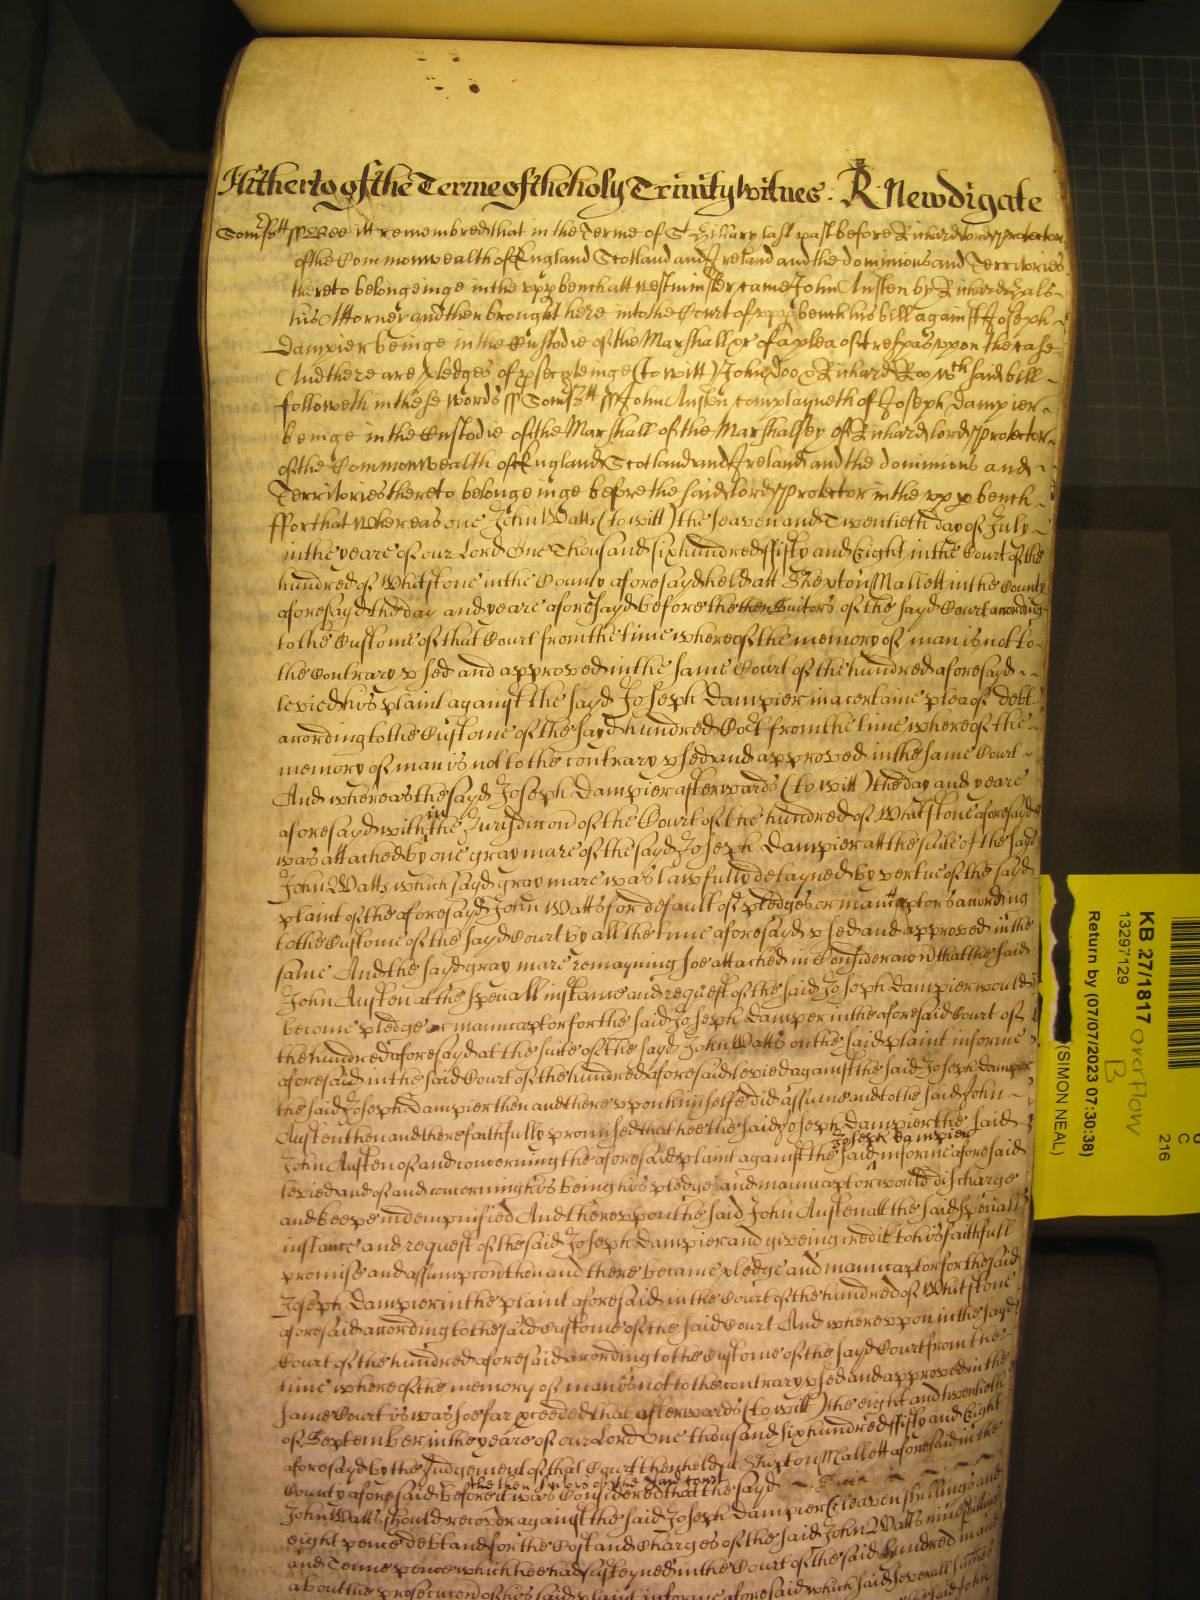 Hitherto of the Terme of the holy Trinity Witnes. R Newdigate
Somst ss Bee itt remembred that in the Terme of St Hillary last past before Richard lord Protector
of the Commonwealth of England Scotland and Ireland and the dominions and Territories
thereto belongeinge in the upp bench att Westminster came John Austen by Richard Hals
his Attorney and then brought here into the Court of upp bench his bill against Joseph
Dampier beinge in the Custodie of the Marshall &c of a plea of trespas upon the case
And there are pledges of psecuteinge (to witt) John Doo & Richard Roo wch said bill
followeth in these words ss Somstt ss John Austen complayneth of Joseph Dampier
beinge in the Custodie of the Marshall of the Marshalsey of Richard lord Protector
of the Commonwealth of England Scotland and Ireland and the dominions and
Territories thereto belongeinge before the said lord Protector in the upp bench
ffor that whereas one John Watts (to witt) the seaven and Twentieth day of July
in the yeare of our Lord One Thousand six hundred ffifty and Eight in the Court of the
hundred of Whitstone in the County aforesayd held att Shepton Mallett in the County
aforesayd the day and yeare aforesayd before the then Suitors of the sayd Court according
to the Custome of that Court from the time whereof the memory of man is not to
the contrary used and approved in the same Court of the hundred aforesayd
levied his plaint against the sayd Joseph Dampier in a certaine plea of debt
according to the Custome of the sayd hundred Cort from the time whereof the
memory of man is not to the contrary used and approved in the same Court
And whereas the sayd Joseph Dampier afterwards (to witt) the day and yeare
aforesayd within the Jurisdiccon of the Court of the hundred of Whitstone aforesayd
was attached by one gray mare of the sayd Joseph Dampier att the suite of the sayd
John Watts which sayd gray mare was lawfully detayned by vertue of the sayd
plaint of the aforesayd John Watts for default of pledges or manucaptors according
to the Custome of the sayd Court by all the time aforesayd used and approved in the
same And the sayd gray mare remayning soe attached in Consideracon that the said
John Austen at the speciall instance and request of the said Joseph Dampier would
become pledge or manucaptor for the said Joseph Dampier in the aforesaid Court of
the hundred aforesayd at the suite of the sayd John Watts on the said plaint in forme
aforesaid in the said Court of the hundred aforesaid levied against the said Joseph Dampier
the said Joseph Dampier then and there upon himselfe did assume and to the said John
Austen then and there faithfully promised that hee the said Joseph Dampier the said
Joseph Dampier
John Austen of and concerning the aforesaid plaint against the said in forme aforesaid
levied and of and concerning his being his pledge and manucaptor would discharge
and keepe indempnified And thereupon the said John Austen att the said speciall
instance and request of the said Joseph Dampier and giveing credit to his faithfull
promise and assumpcon then and there became pledge and manucaptor for the said
Joseph Dampier in the plaint aforesaid in the Court of the hundred of Whitstone
aforesaid according to the said Custome of the said Court And whereupon in the sayd
Court of the hundred aforesaid according to the Custome of the sayd Court from the
time whereof the memory of man is not to the contrary used and approved in the
same Court it was soe far pceeded that afterwards (to witt) the eight and twentieth
of September in the yeare of our Lord One thousand six hundred ffifty and Eight
aforesayd by the Judgement of that Court then held at Shepton Mallett aforesaid in the
the then Suitors of the said Court
County aforesaid before it was Considered that the sayd
John Watts should recover against the said Joseph Dampier Eleaven shillings and
eight pence debt and for the Cost and Charges of the said John Watts nine shillings
and Tenne pence which hee had susteyned in the Court of the said hundred in and
about the prosecucon of his said plaint in forme aforesaid which said severall summes
KB 27/1817
13297129
Return by (07/07/2023 07:30:38)
(SIMON NEAL)
Overflow
B
C
216